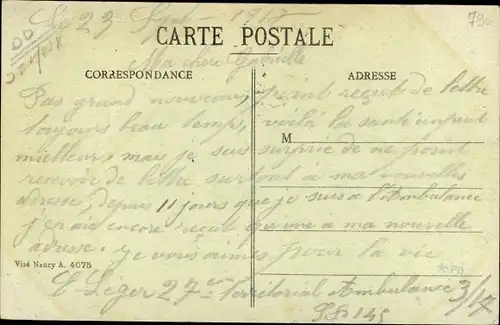 Le 23 Sept 1917
CARTE POSTALE
Ma chère Gabrielle
CORRESPONDANCE
ADRESSE
Pas grand nouveau, point reçut de lettre
toujours beau temps, voilà la santé un peut
M
meilleurs mais je suis surprise de ne point
recevoir de lettre surtout à ma nouvelles
adresse, depuis 11 jours que je suis a l'Ambulance
j'ai encore reçut que une a ma nouvelle
adresse. je vous aimes pour la vie
Visé Nancy A. 4075
E Léger 27e territorial Ambulance 3/17
SP 145